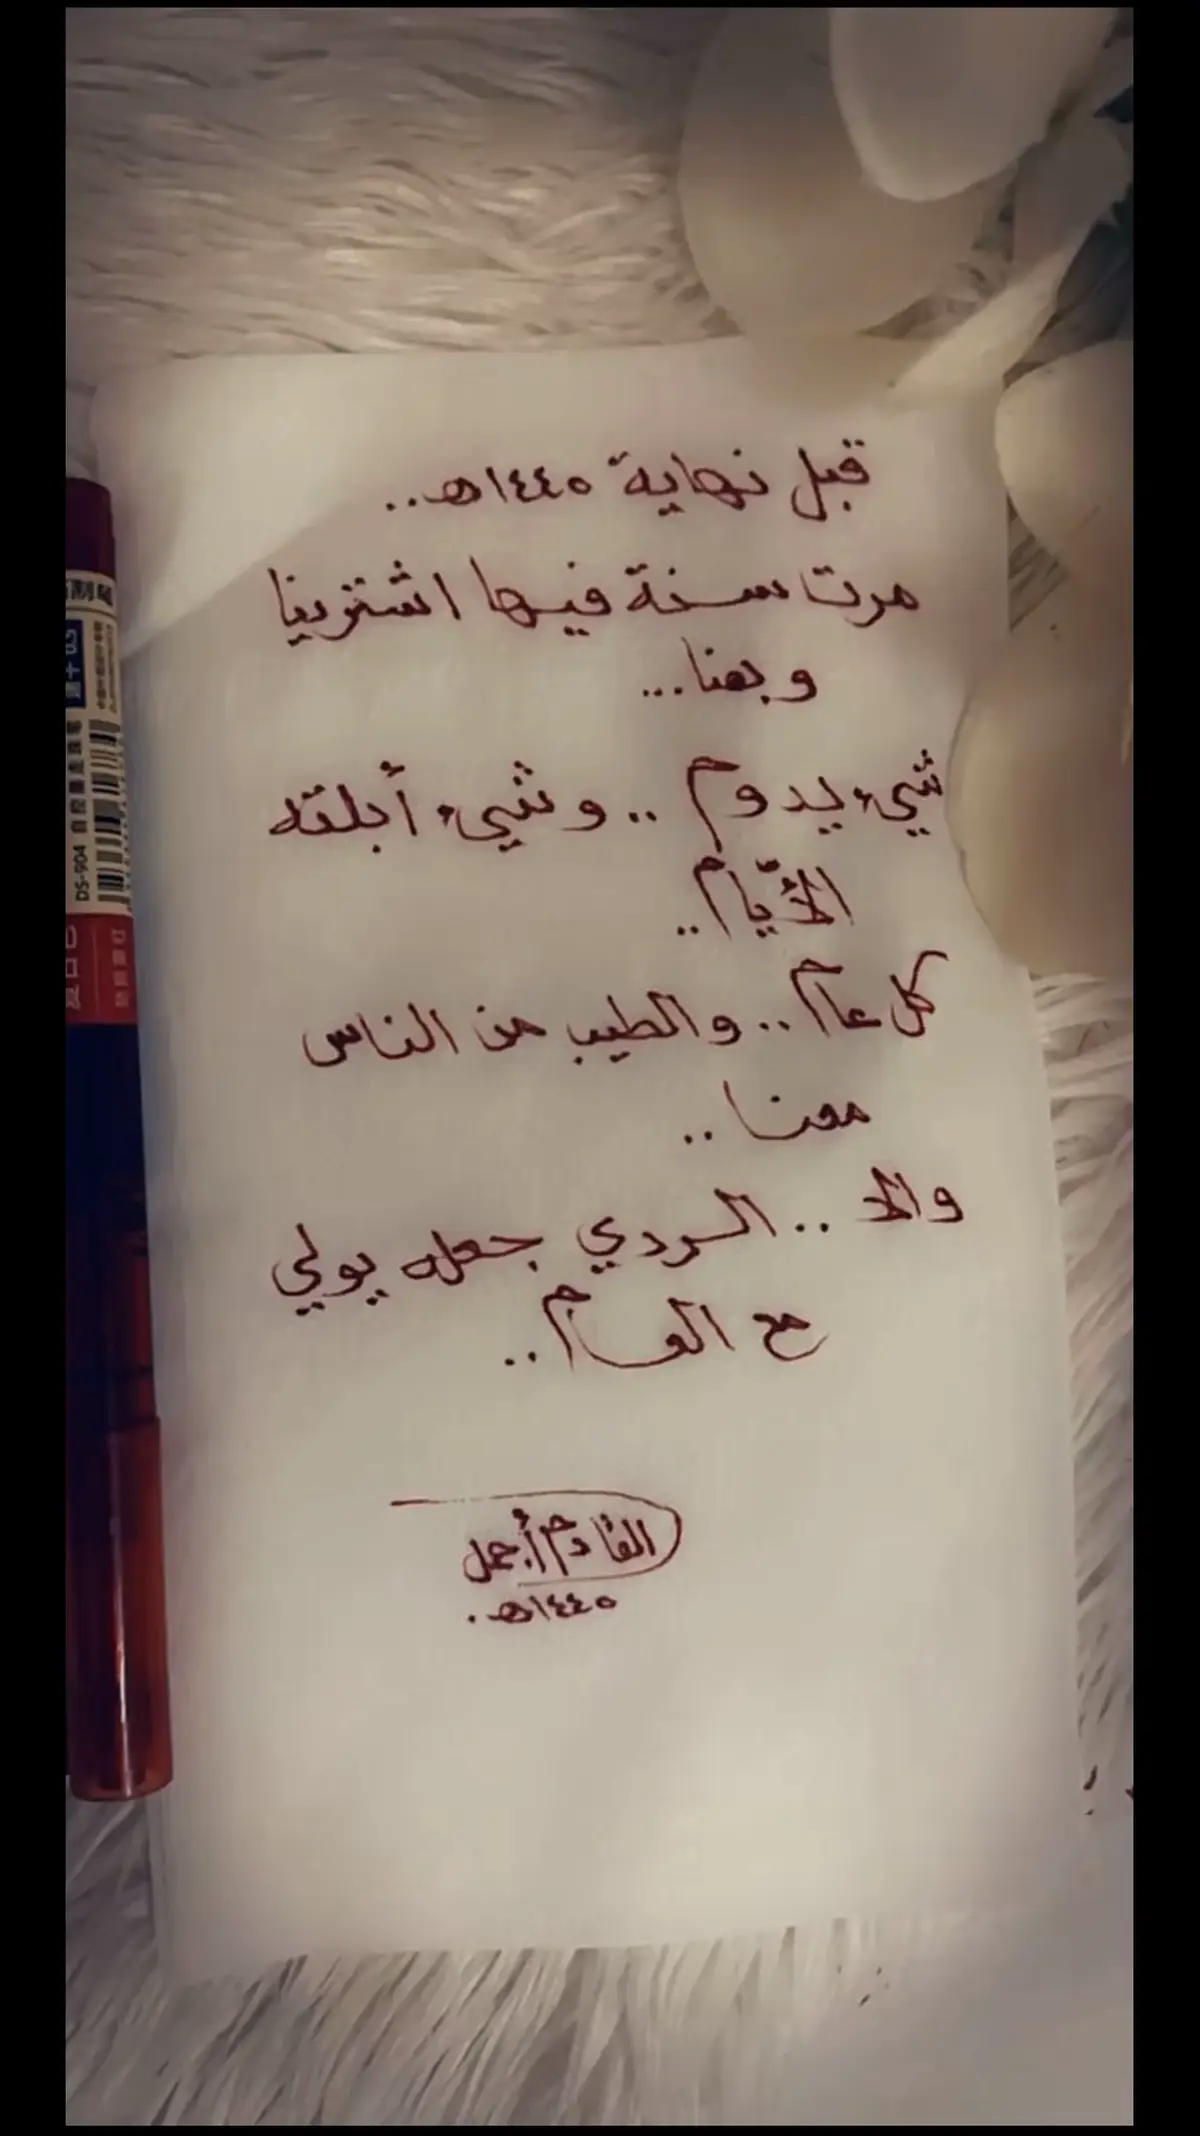 قبل نهاية ١٤٤٠هـ..
مرت سنة فيها اشترينا
وبعنا...
شيء يدوم .. وشيء أبلقه
الأيّام ..
كل عام .. والطيب من الناس
معنا ..
والا .. الردي جعله يولي
مع العام ..
القادم أجمل
١٤٤٠هـ.
DS-904